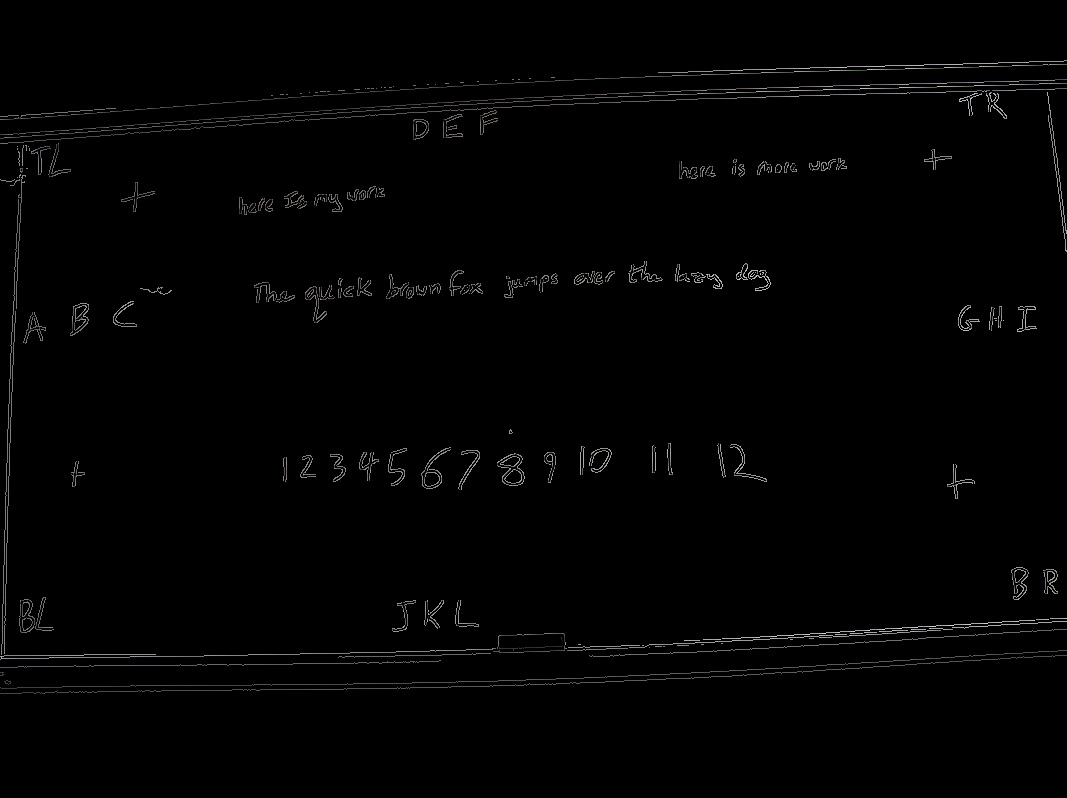 TL
TR
D E F
+
here is my work
here is more work
+
The quick brown fox jumps over the lazy dog
A B C
G H I
+
1 2 3 4 5 6 7 8 9 10 11 12
+
BL
JKL
BR